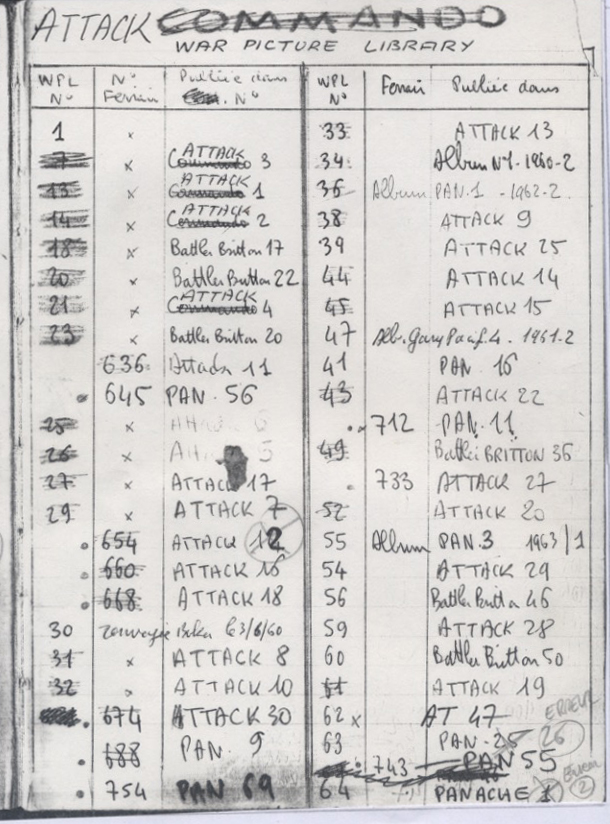 ATTACK COMMANDO
WAR PICTURE LIBRARY
WPL N° N° Ferrari Publiée dans N°
1 x
7 x ATTACK Commando 3
13 x ATTACK Commando 1
14 x ATTACK Commando 2
18 x Battler Britton 17
20 x Battler Britton 22
21 x ATTACK Commando 4
23 x Battler Britton 20
636 Attack 11
645 PAN. 56
25 x Attack 6
26 x Att 5
27 x ATTACK 17
29 x ATTACK 7
654 ATTACK 12
660 ATTACK 16
668 ATTACK 18
30 le 3/6/60
31 x ATTACK 8
32 x ATTACK 10
674 ATTACK 30
688 PAN. 9
754 PAN 69
WPL N° Ferrari Publiée dans
33 ATTACK 13
34 Album N°1-1960-2
36 Album PAN.1 - 1962-2.
38 ATTACK 9
39 ATTACK 25
44 ATTACK 14
45 ATTACK 15
47 Alb. Gary Pacif. 4. 1961-2
41 PAN. 16
43 ATTACK 22
x 712 PAN. 11
49 Battler BRITTON 36
733 ATTACK 27
52 ATTACK 20
55 Album PAN.3 1963/1
54 ATTACK 29
56 Battler Britton 46
59 ATTACK 28
60 Battler Britton 50
61 ATTACK 19
62 x AT 47 ERREUR
63 PAN. 25 26
743 PAN 55
64 PANACHE 1 2